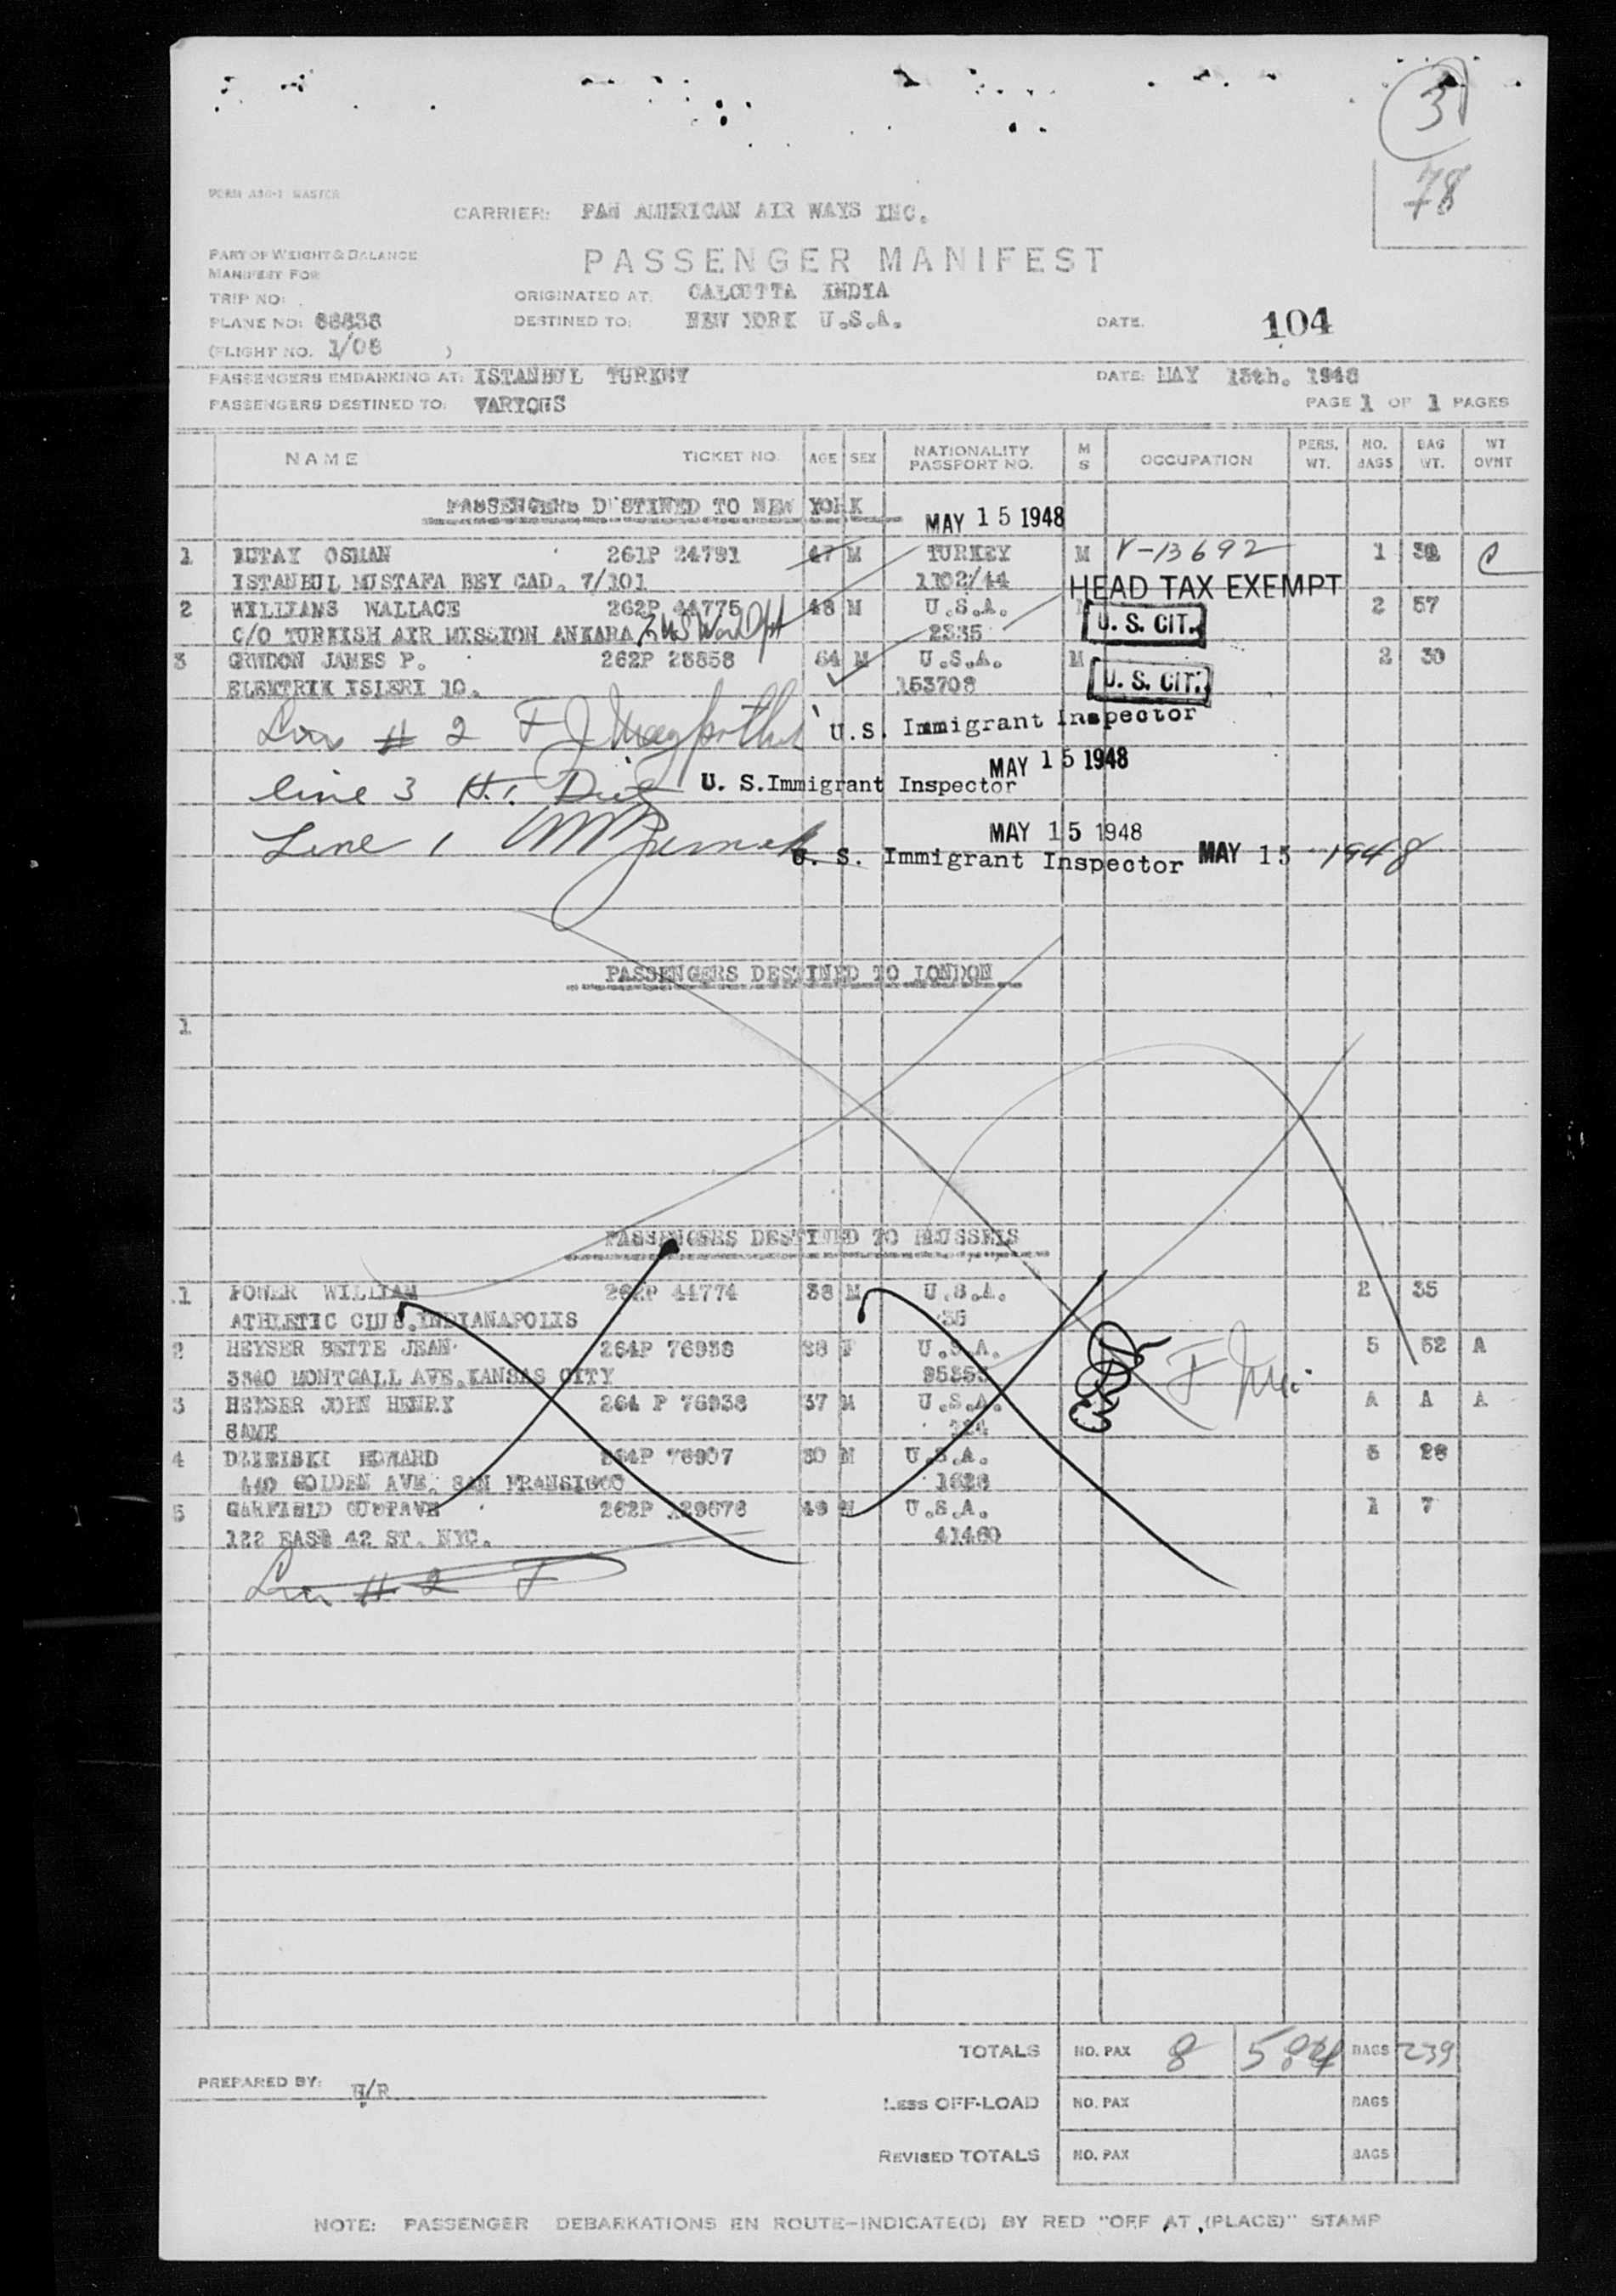 3
78
FORM ASG-1 MASTER
CARRIER: PAN AMERICAN AIR WAYS INC.
PART OF WEIGHT & BALANCE
MANIFEST FOR
PASSENGER MANIFEST
TRIP NO:
ORIGINATED AT: CALCUTTA INDIA
PLANE NO: 88838
DESTINED TO: NEW YORK U.S.A.
DATE. 104
(FLIGHT NO. 1/08 )
PASSENGERS EMBARKING AT: ISTANBUL TURKEY DATE: MAY 13th. 1948
PASSENGERS DESTINED TO: VARIOUS PAGE 1 OF 1 PAGES
NAME TICKET NO. AGE SEX NATIONALITY PASSPORT NO. M S OCCUPATION PERS. WT. NO. BAGS BAG WT. WT OVMT
PASSENGERS DESTINED TO NEW YORK MAY 15 1948
1 KUTAY OSMAN 261P 24791 47 M TURKEY M V-13692 1
ISTANBUL MUSTAFA BEY CAD. 7/101 1102/44 HEAD TAX EXEMPT
2 WILLIAMS WALLACE 262P 44775 48 M U.S.A. 2 57
C/O TURKISH AIR MISSION ANKARA 2335 U.S. CIT.
3 GRWDON JAMES P. 262P 23858 64 M U.S.A. M 2 30
ELEKTRIK ISLERI 10. 153708 U.S. CIT.
# 2 U.S. Immigrant Inspector
MAY 15 1948
line 3 U. S. Immigrant Inspector
MAY 15 1948
Line 1 U. S. Immigrant Inspector MAY 15 1948
PASSENGERS DESTINED TO LONDON
1
PASSENGERS DESTINED TO BRUSSELS
1 POWER WILLIAM 262P 44774 38 M U.S.A. 2 35
ATHLETIC CLUB, INDIANAPOLIS 35
2 HEYSER BETTE JEAN 264P 76938 28 F U.S.A. 5 52 A
3340 MONTGALL AVE. KANSAS CITY 95353
3 HEYSER JOHN HENRY 264 P 76938 37 M U.S.A. A A A
SAME
4 EDWARD 264P 76907 30 M U.S.A. 28
440 GOLDEN AVE. SAN FRANSISCO
5 GARFIELD GUSTAVE 262P 29676 49 M U.S.A. 1 7
122 EAST 42 ST. NYC. 41460
# 2
TOTALS NO. PAX 8 BAGS 239
PREPARED BY:
LESS OFF-LOAD NO. PAX BAGS
REVISED TOTALS NO. PAX BAGS
NOTE: PASSENGER DEBARKATIONS EN ROUTE-INDICATE(D) BY RED "OFF AT (PLACE)" STAMP